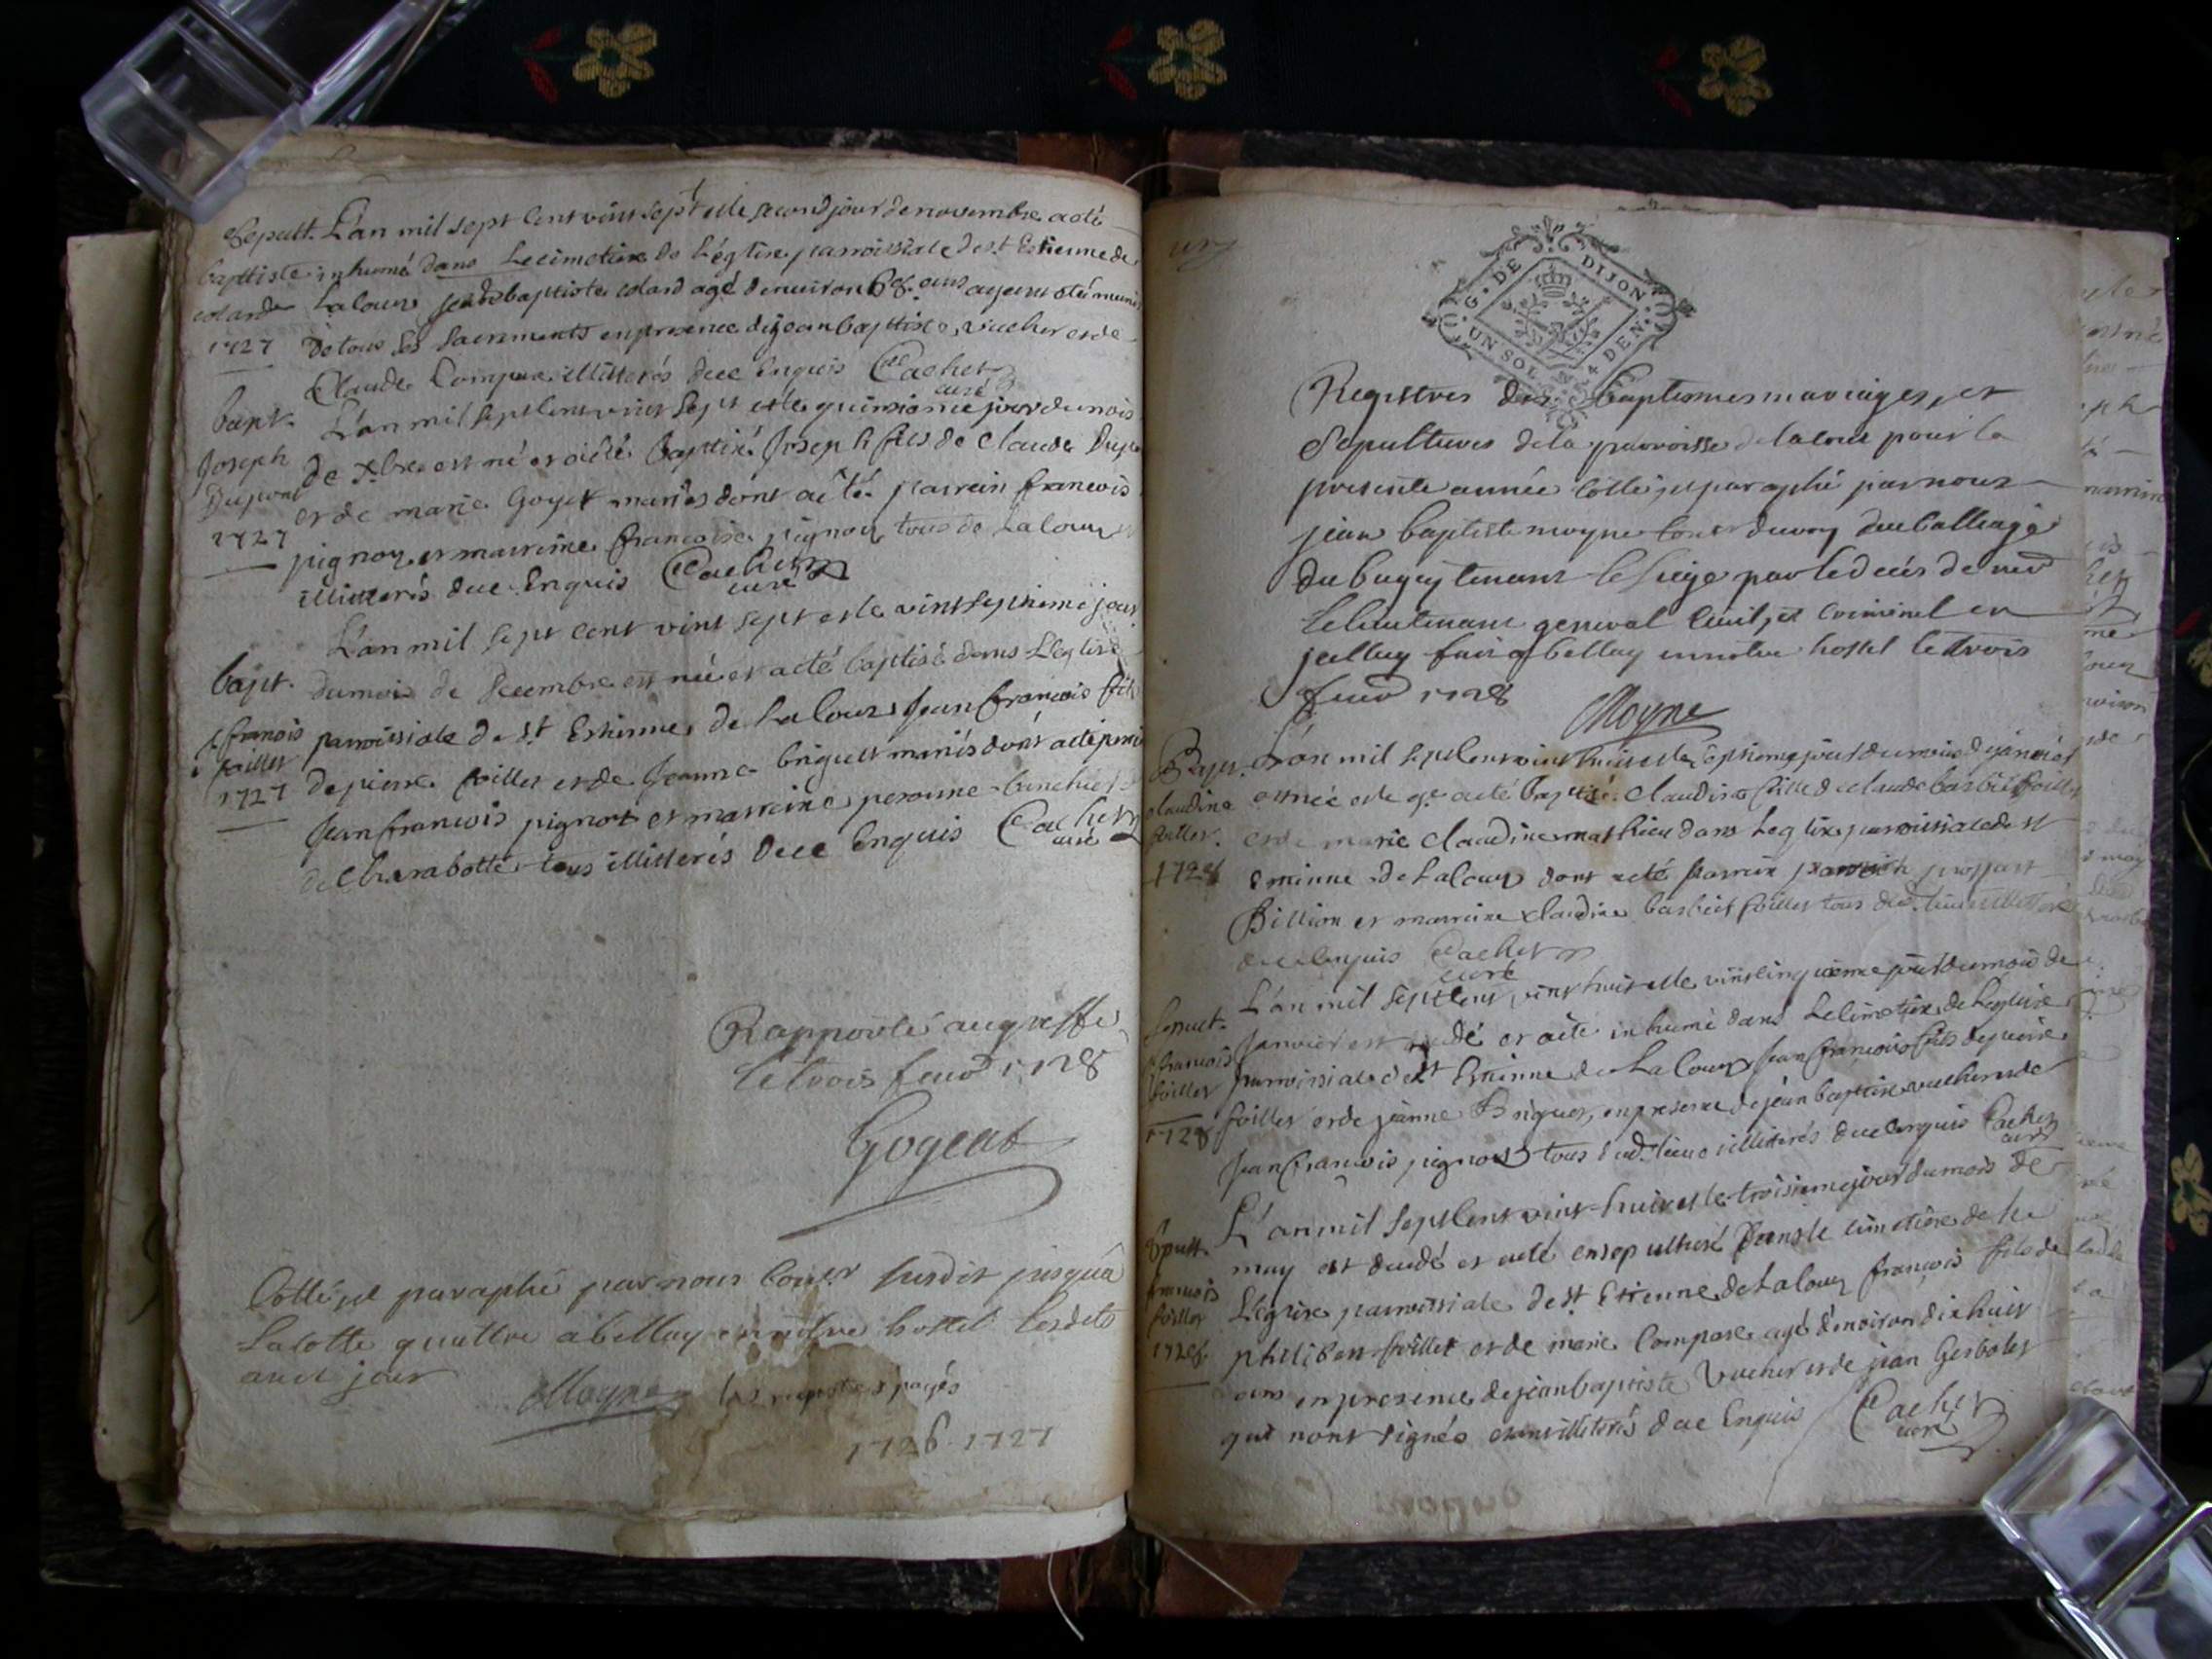 Sepult. L'an mil sept cent vint sept et le second jour de novembre a eté
baptiste inhumé dans le cimetiere de l'église parroissiale de st Estienne de
colard Lalour jean baptiste colard agé d'environ ans ayant eté muni
1727 de tous ses sacrements en presence de jean baptiste vucher et de
Claude Compare illitterés de ce enquis Cachet
curé
bapt. L'an mil sept cent vint sept et le quinzieme jour du mois
Joseph de xbre est né et a été baptisé Joseph fils de Claude Dupont
Dupont et de marie Goyet mariés dont a été parrain francois
1727 pignoz et marreine francoise pignoz tous de Lalour
illitterés de ce enquis Cachet
curé
L'an mil sept cent vint sept et le vint septieme jour
bapt. du mois de decembre est né et a eté baptisé dans L'eglise
j francois parroissiale de st Estienne de Lalour Jean francois fils
foillet de pierre foillet et de Jeanne briguet mariés dont a eté parrain
1727 Jean francois pignoz et marreine peronne
de tous illitterés de ce enquis Cachet
curé
Rapporté au greffe
le trois feuvr 1728
Gogeat
Cotté et paraphé par nous susdit jusqu'a
La cotte quattre a belley en notre hostel lesdits
an et jour
Moyne les registres payés
1726. 1727
G. DE DIJON
UN SOL 4 DEN.
Registres des baptemes mariages, et
Sepultures de la parroisse de lalour pour la
presente année cotté et paraphé par nous
jean baptiste moyne au balliage
du bugey tenant le siege par le decés de
Le lieutenant general civil, et criminel en
jcelluy fait a belley en notre hostel le trois
feuvr 1728 Moyne
Bapt. L'an mil sept cent vint huit et le septieme jour du mois de janvier
claudine est née et a eté baptisé claudine fille de claude foillet
foillet. et de marie claudine mathieu dans L'eglise parroissiale de st
1728 Etienne de Lalour dont a eté parrain
Billion et marreine claudine foillet tous illitterés
de ce enquis Cachet
curé
Sepult. L'an mil sept cent vint huit et le vint cinquieme jour du mois de
j francois Janvier est decedé et a eté inhumé dans Le cimetiere de L'eglise
foillet parroissiale de st Etienne de Lalour Jean francois fils de pierre
1728 foillet et de jeanne Briguet, en presence de jean baptiste vucher et de
Jean francois pignoz tous dud. lieu illitterés de ce enquis Cachet
curé
L'an mil sept cent vint huit et le troisieme jour du mois de
Sepult. may est decedé et a eté ensepulturé dans le cimetiere de
francois L'eglise parroissiale de st Etienne de Lalour francois fils de
foillet philibert foillet et de marie Compare agé d'environ dix huit
1728. ans en presence de jean baptiste Vucher et de jean Gerbolet
qui n'ont signés etant illiterés de ce enquis Cachet
curé